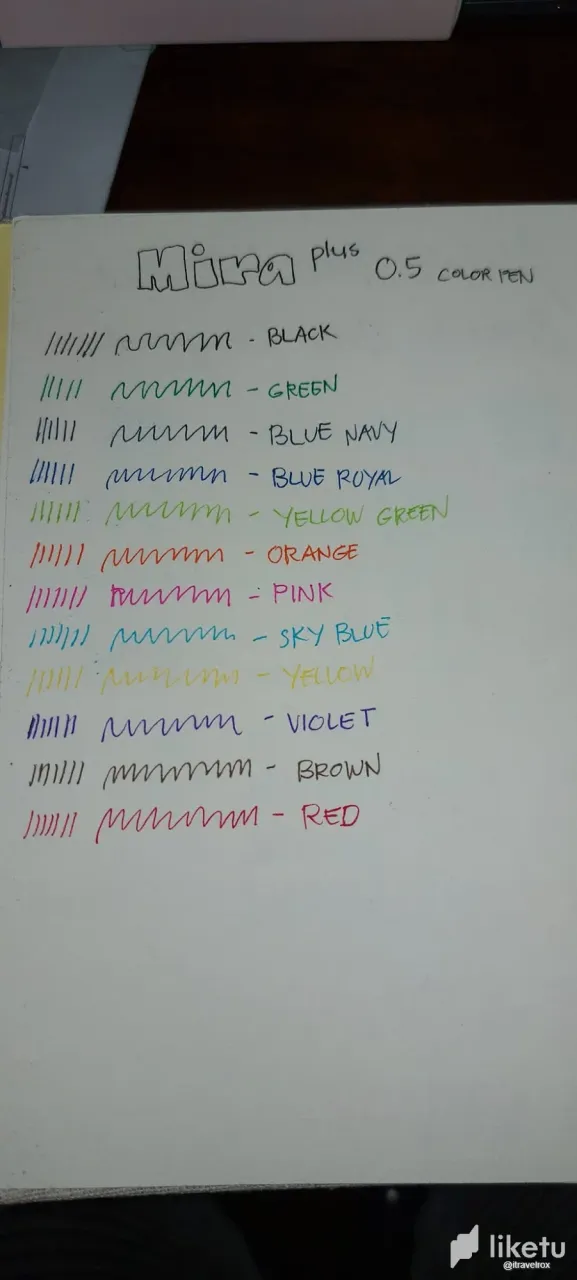 Mira plus 0.5 COLOR PEN
- BLACK
- GREEN
- BLUE NAVY
- BLUE ROYAL
- YELLOW GREEN
- ORANGE
- PINK
- SKY BLUE
- YELLOW
- VIOLET
- BROWN
- RED
liketu
@itravelrox